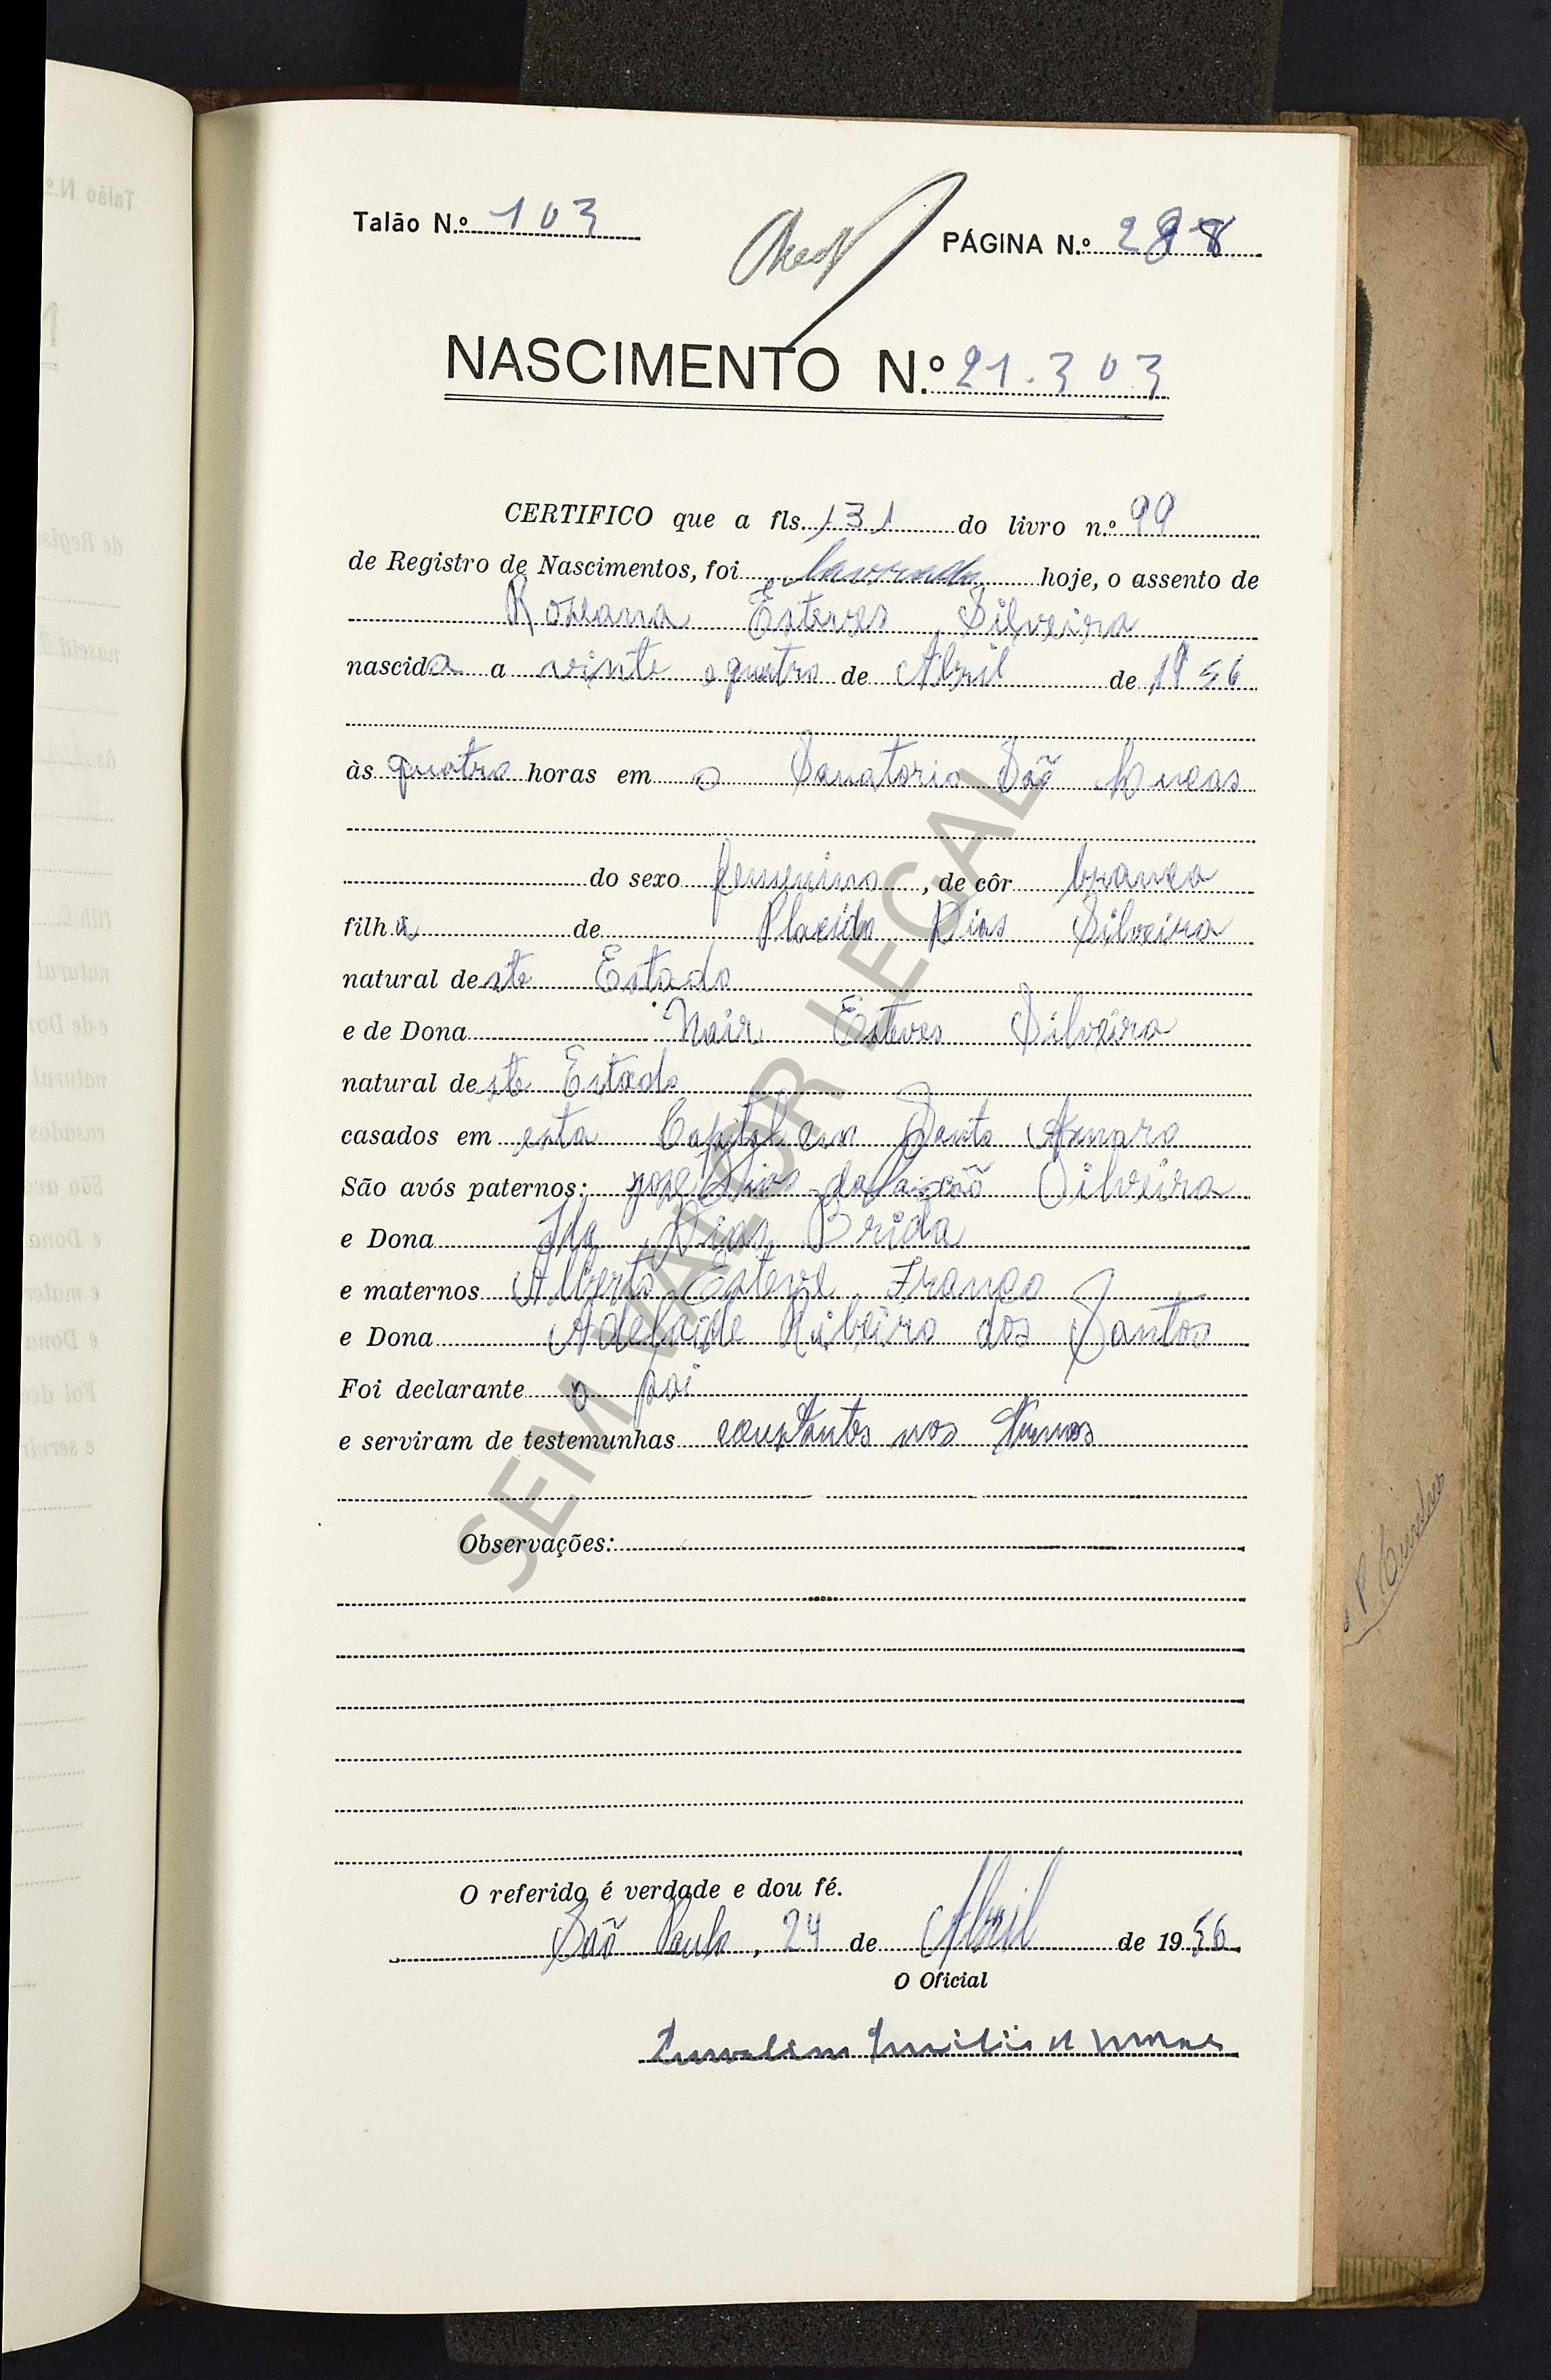 Talão N.º 103
PÁGINA N.º 288
NASCIMENTO N.º 21.303
CERTIFICO que a fls. 131 do livro n.º 99
de Registro de Nascimentos, foi lavrado hoje, o assento de
Roseana Esteves Silveira
nascida a vinte e quatro de Abril de 1956
às quatro horas em o Sanatorio São Lucas
do sexo femenino, de côr branca
filha de Placido Dias Silveira
natural deste Estado
e de Dona Nair Esteves Silveira
natural deste Estado
casados em esta Capital em Santo Amaro
São avós paternos: José Dias da Silveira
e Dona Ida Dias Brida
e maternos Alberto Esteve Franco
e Dona Adelaide Ribeiro dos Santos
Foi declarante o pai
e serviram de testemunhas constantes nos termos
Observações:
O referido é verdade e dou fé.
São Paulo, 24 de Abril de 1956
O Oficial
SEM VALOR LEGAL